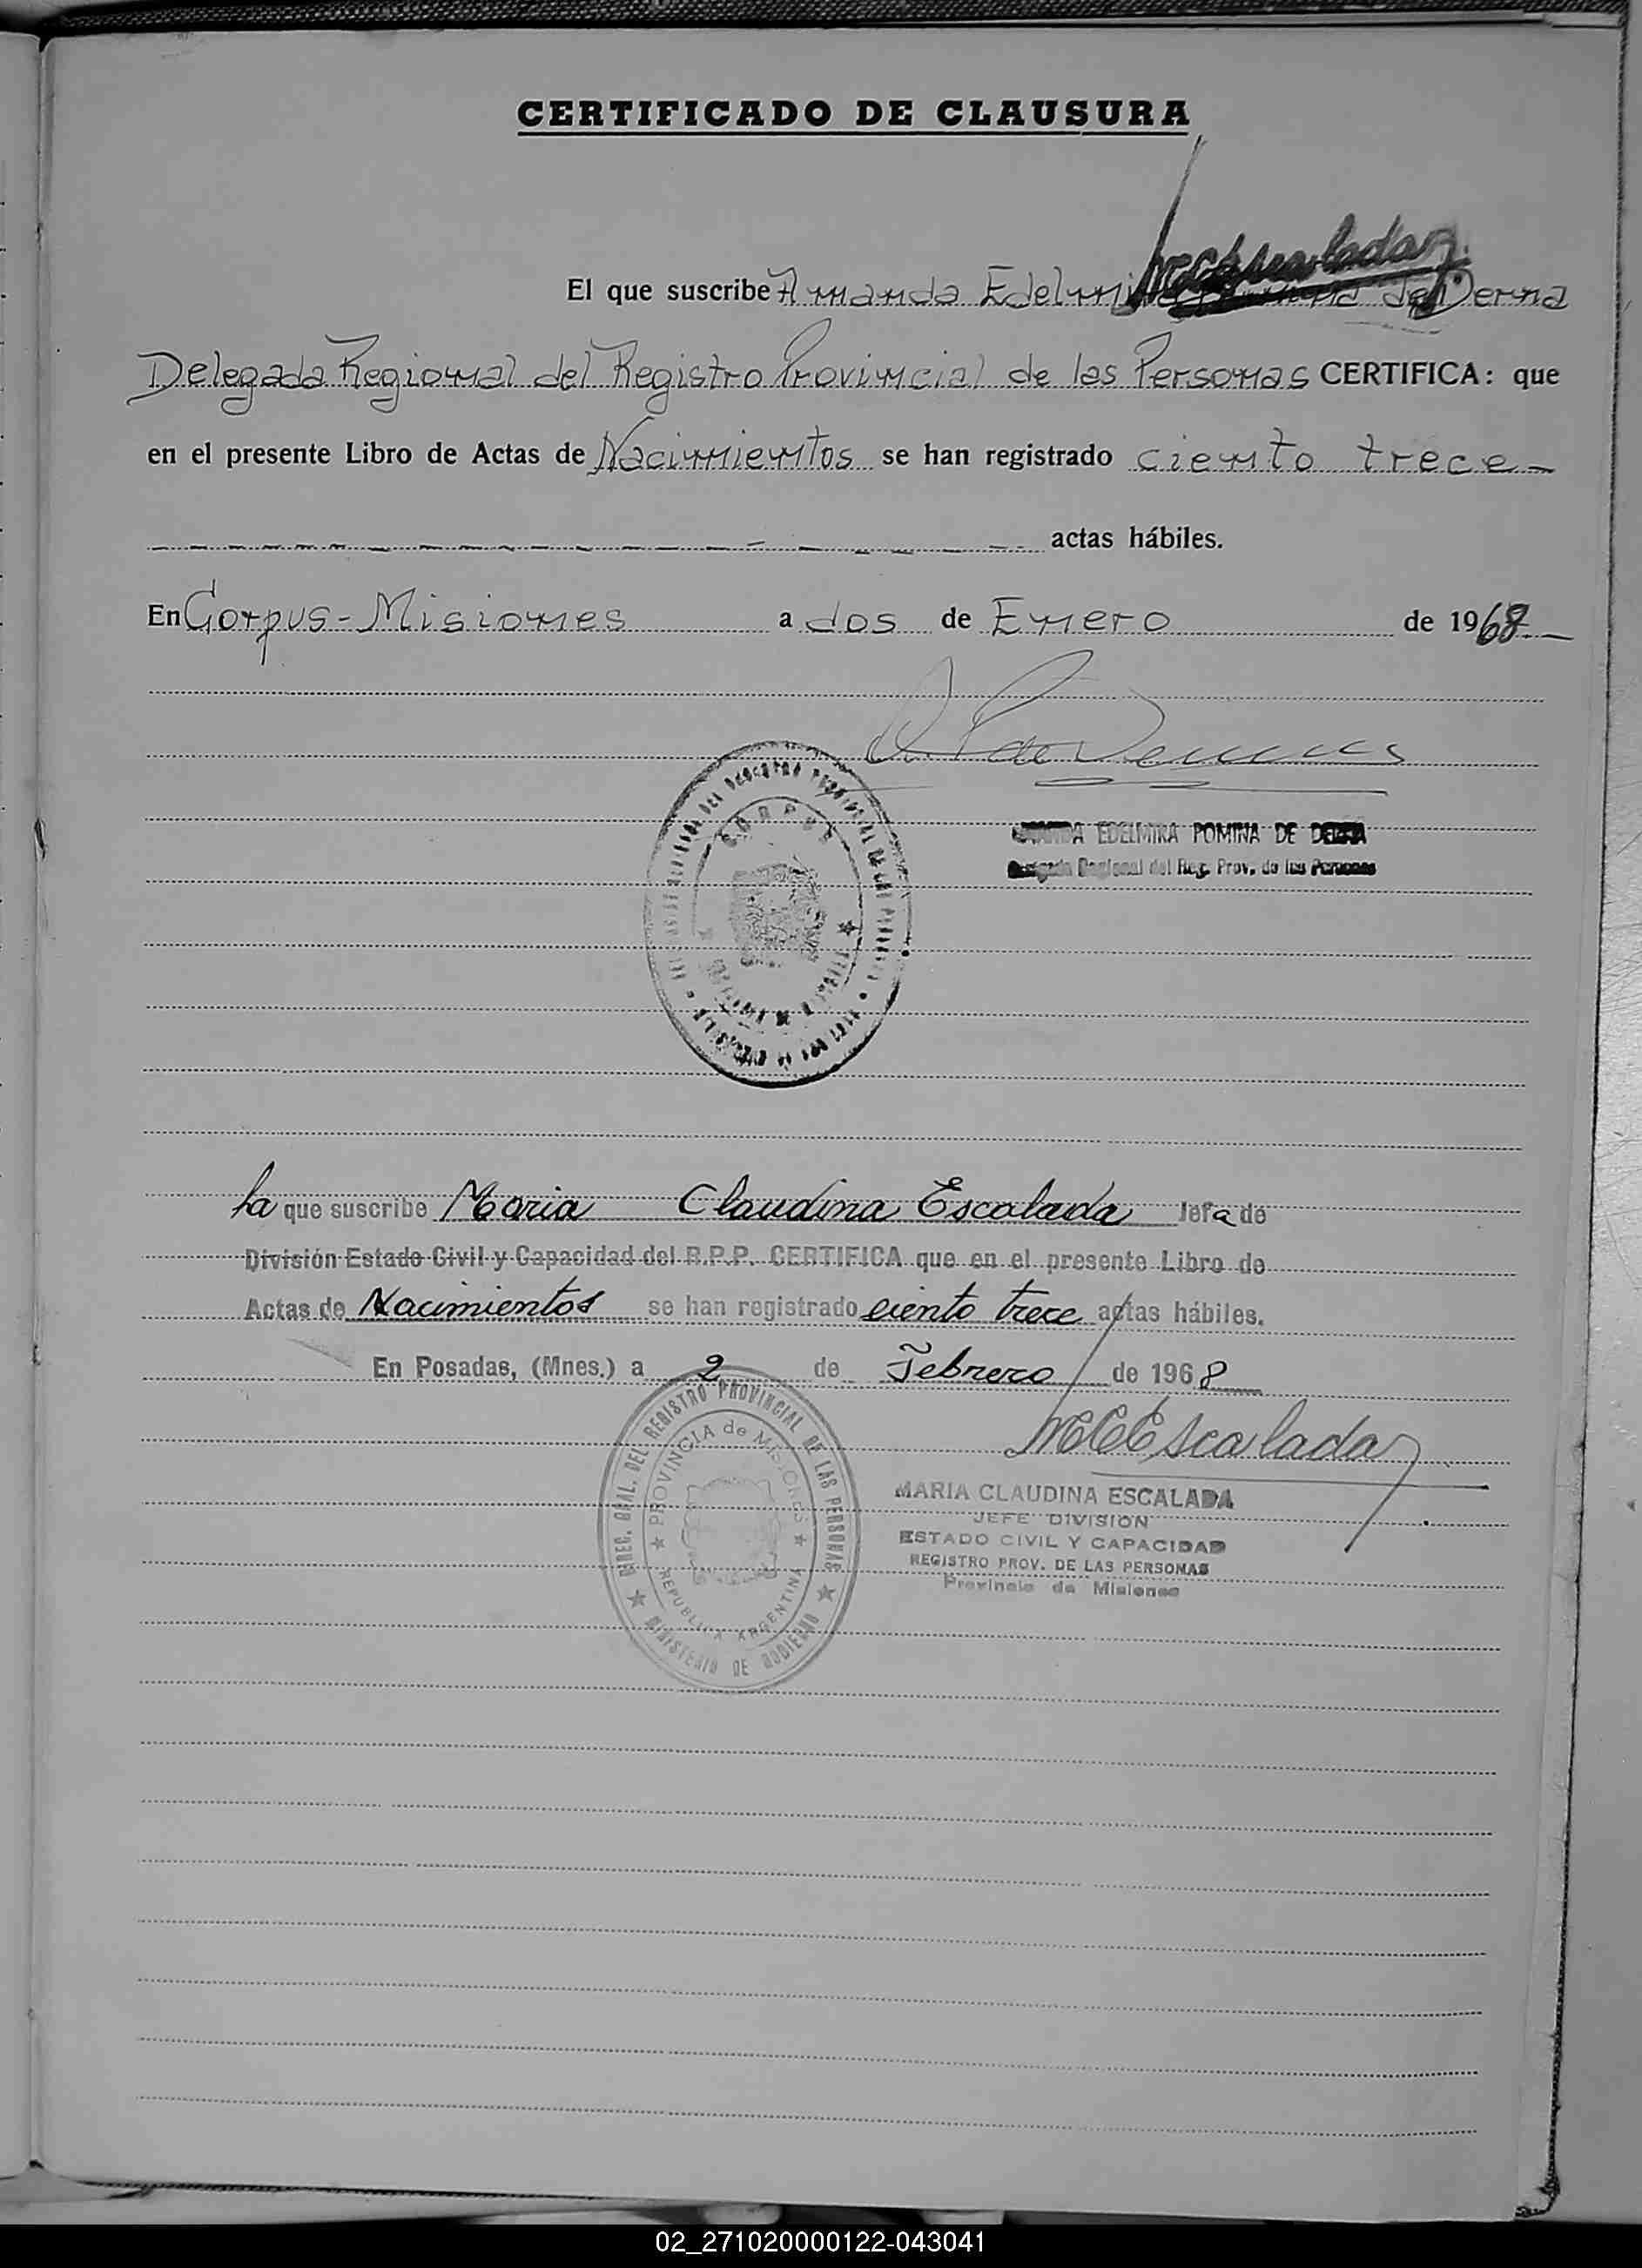 CERTIFICADO DE CLAUSURA
El que suscribe Amanda Edelmira de Derna
Delegada Regional del Registro Provincial de las Personas CERTIFICA: que
en el presente Libro de Actas de Nacimientos se han registrado ciento trece -
actas hábiles.
En Corpus - Misiones a dos de Enero de 1968
EDELMIRA POMINA DE DERNA
Regional del Reg. Prov. de las Personas
CORPUS
La que suscribe Maria Claudina Escalada Jefa de
División Estado Civil y Capacidad del R.P.P. CERTIFICA que en el presente Libro de
Actas de Nacimientos se han registrado ciento trece actas hábiles.
En Posadas, (Mnes.) a 2 de Febrero de 1968
MCEscalada
MARIA CLAUDINA ESCALADA
JEFE DIVISION
ESTADO CIVIL Y CAPACIDAD
REGISTRO PROV. DE LAS PERSONAS
Provincia de Misiones
DIREC. GRAL. DEL REGISTRO PROVINCIAL DE LAS PERSONAS
PROVINCIA de MISIONES
REPUBLICA ARGENTINA
MINISTERIO DE GOBIERNO
02_271020000122-043041